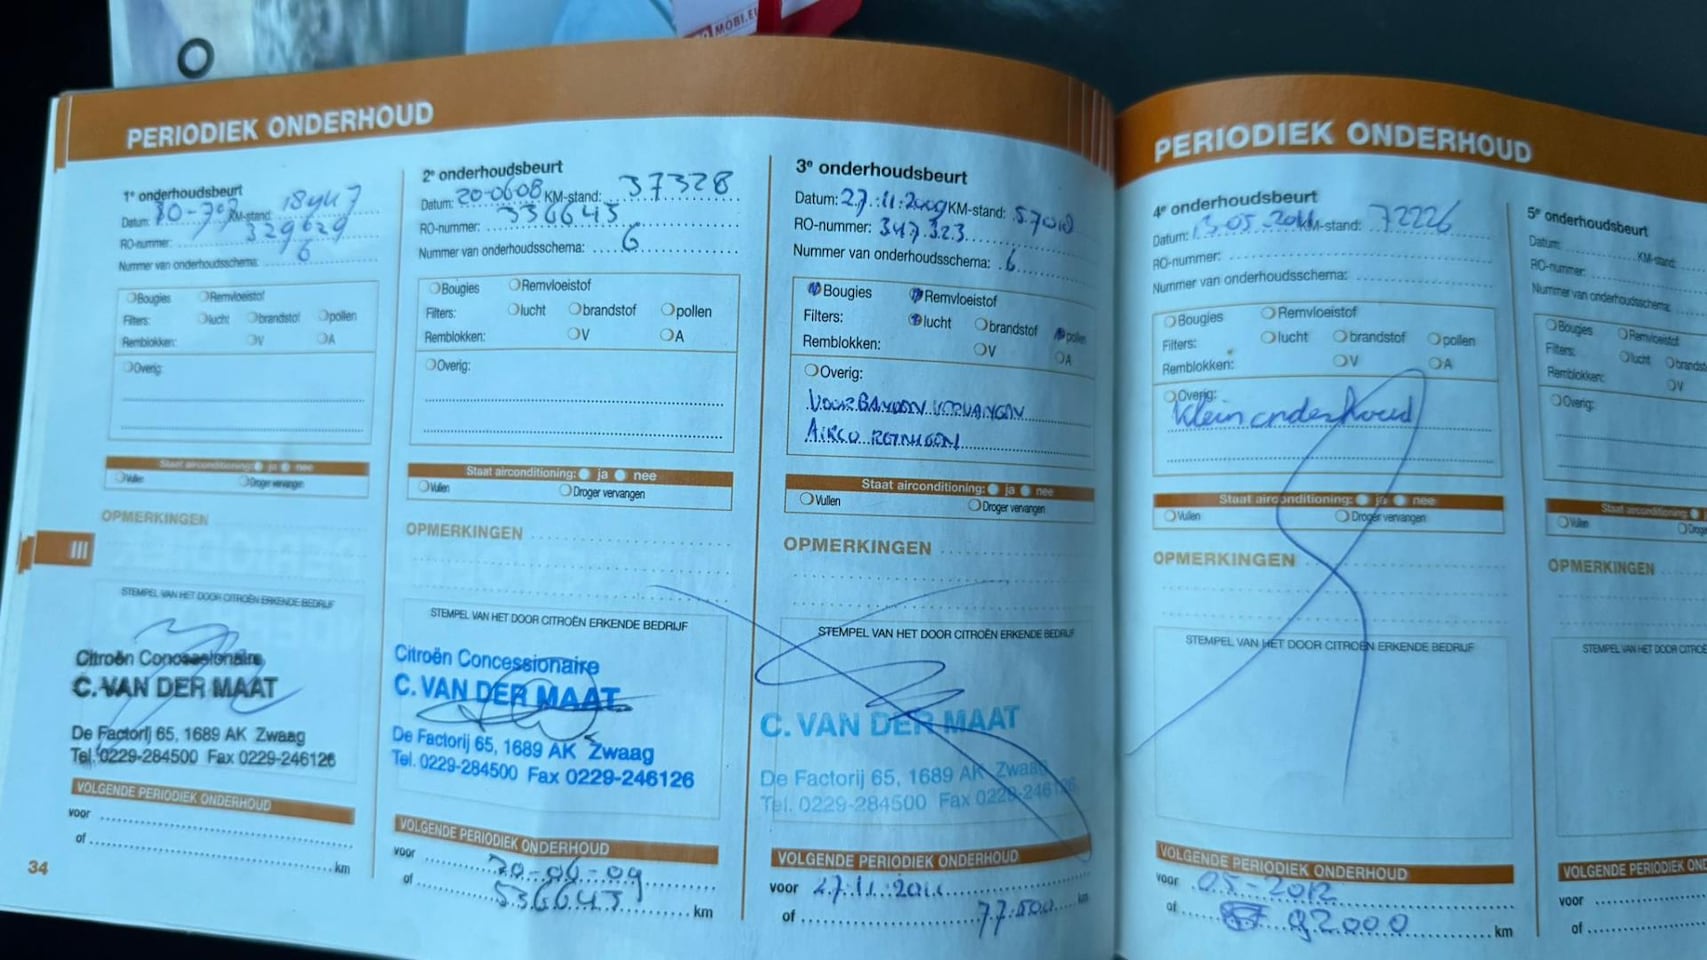 MOBI.EU
PERIODIEK ONDERHOUD
1e onderhoudsbeurt
Datum: KM-stand:
RO-nummer: 329629
Nummer van onderhoudsschema: 6
Bougies Remvloeistof
Filters: lucht brandstof pollen
Remblokken: V A
Overig:
Staat airconditioning: ja nee
Vullen Droger vervangen
OPMERKINGEN
STEMPEL VAN HET DOOR CITROËN ERKENDE BEDRIJF
Citroën Concessionaire
C. VAN DER MAAT
De Factorij 65, 1689 AK Zwaag
Tel. 0229-284500 Fax 0229-246126
VOLGENDE PERIODIEK ONDERHOUD
voor
of km
III
34
2e onderhoudsbeurt
Datum: 20-06-08 KM-stand: 37328
RO-nummer: 336643
Nummer van onderhoudsschema: 6
Bougies Remvloeistof
Filters: lucht brandstof pollen
Remblokken: V A
Overig:
Staat airconditioning: ja nee
Vullen Droger vervangen
OPMERKINGEN
STEMPEL VAN HET DOOR CITROËN ERKENDE BEDRIJF
Citroën Concessionaire
C. VAN DER MAAT
De Factorij 65, 1689 AK Zwaag
Tel. 0229-284500 Fax 0229-246126
VOLGENDE PERIODIEK ONDERHOUD
voor 20-06-09
of 536643 km
3e onderhoudsbeurt
Datum: 27.11.2009 KM-stand: 57018
RO-nummer: 347.323
Nummer van onderhoudsschema: 6
Bougies Remvloeistof
Filters: lucht brandstof pollen
Remblokken: V A
Overig:
VOORBANDEN VERVANGEN
AIRCO REINIGEN
Staat airconditioning: ja nee
Vullen Droger vervangen
OPMERKINGEN
STEMPEL VAN HET DOOR CITROËN ERKENDE BEDRIJF
C. VAN DER MAAT
De Factorij 65, 1689 AK Zwaag
Tel. 0229-284500 Fax 0229-246126
VOLGENDE PERIODIEK ONDERHOUD
voor 27.11.2011
of 77.500 km
PERIODIEK ONDERHOUD
4e onderhoudsbeurt
Datum: 13.05.2011 KM-stand: 72226
RO-nummer:
Nummer van onderhoudsschema:
Bougies Remvloeistof
Filters: lucht brandstof pollen
Remblokken: V A
Overig:
Klein onderhoud
Staat airconditioning: ja nee
Vullen Droger vervangen
OPMERKINGEN
STEMPEL VAN HET DOOR CITROËN ERKENDE BEDRIJF
VOLGENDE PERIODIEK ONDERHOUD
voor 05-2012
of 92000 km
5e onderhoudsbeurt
Datum: KM-stand:
RO-nummer:
Nummer van onderhoudsschema:
Bougies Remvloeistof
Filters: lucht brandst
Remblokken: V
Overig:
Staat airconditioning:
Vullen Droge
OPMERKINGEN
STEMPEL VAN HET DOOR CITROË
VOLGENDE PERIODIEK ON
voor
of